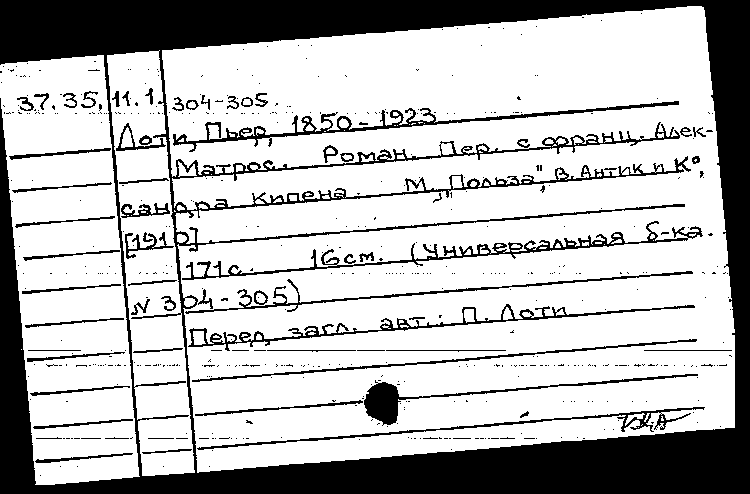 37.35.11.1. 304-305.
Лоти, Пьер, 1850-1923
Матрос. Роман. Пер. с франц. Алек-
сандра Кипена. М., „Польза", В. Антик и К°,
[1910].
171с. 16см. (Универсальная б-ка.
N 304-305)
Перед загл. авт.: П. Лоти